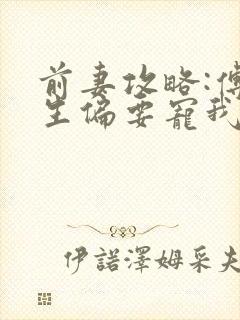 前妻攻略:傅
生偏要寵我
伊諾澤姆采夫